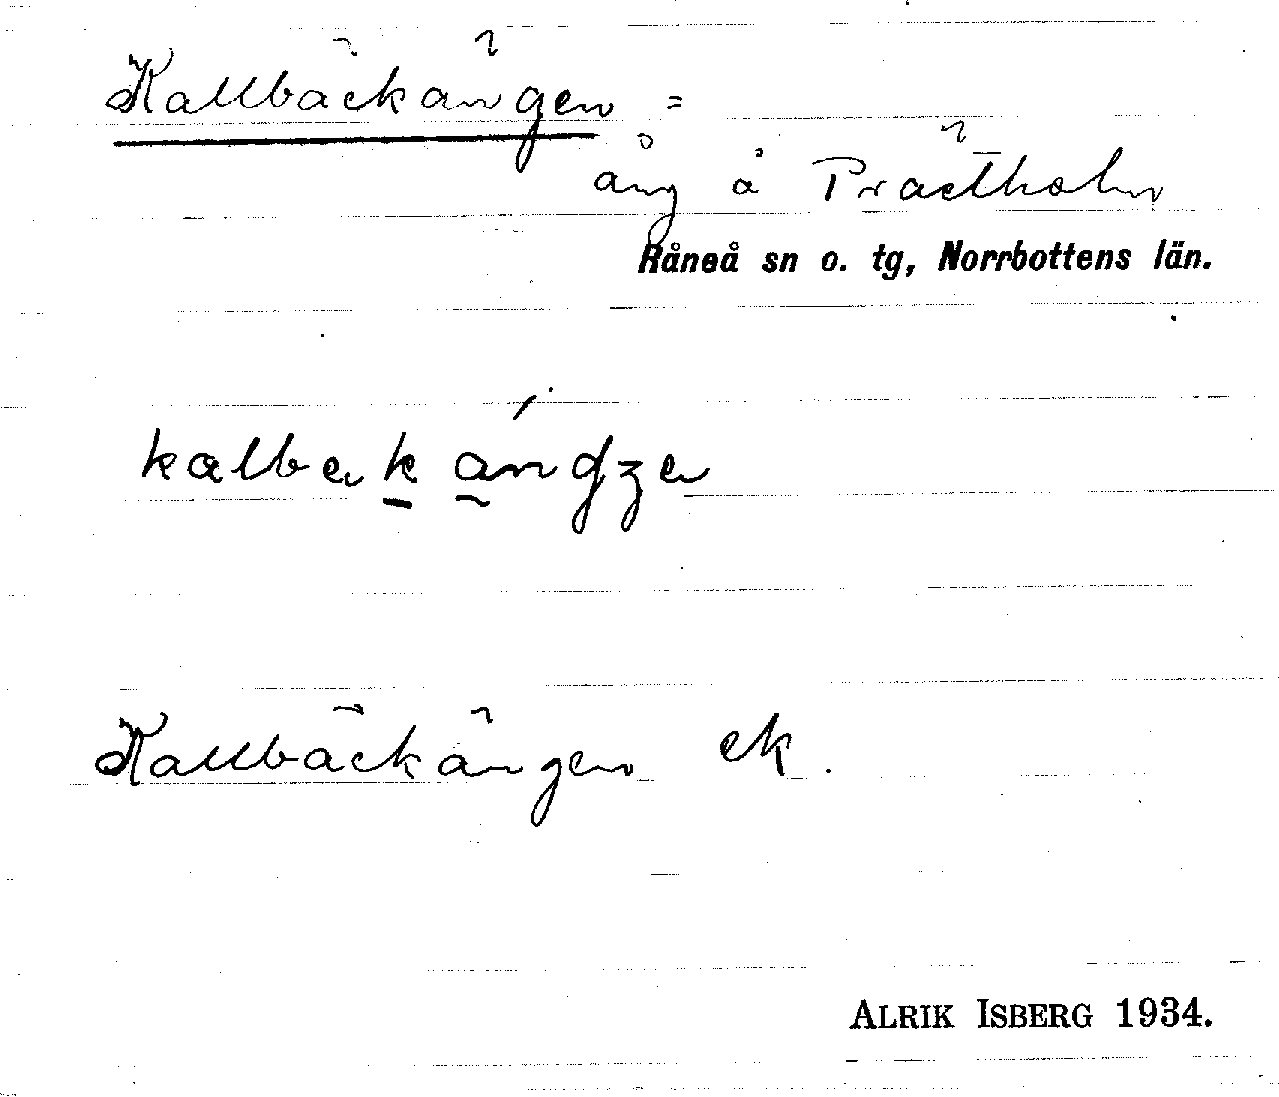 Kallbäckängen =
äng å Prästholm
Råneå sn o. tg, Norrbottens län.
Kallbäckängen ek.
ALRIK ISBERG 1934.